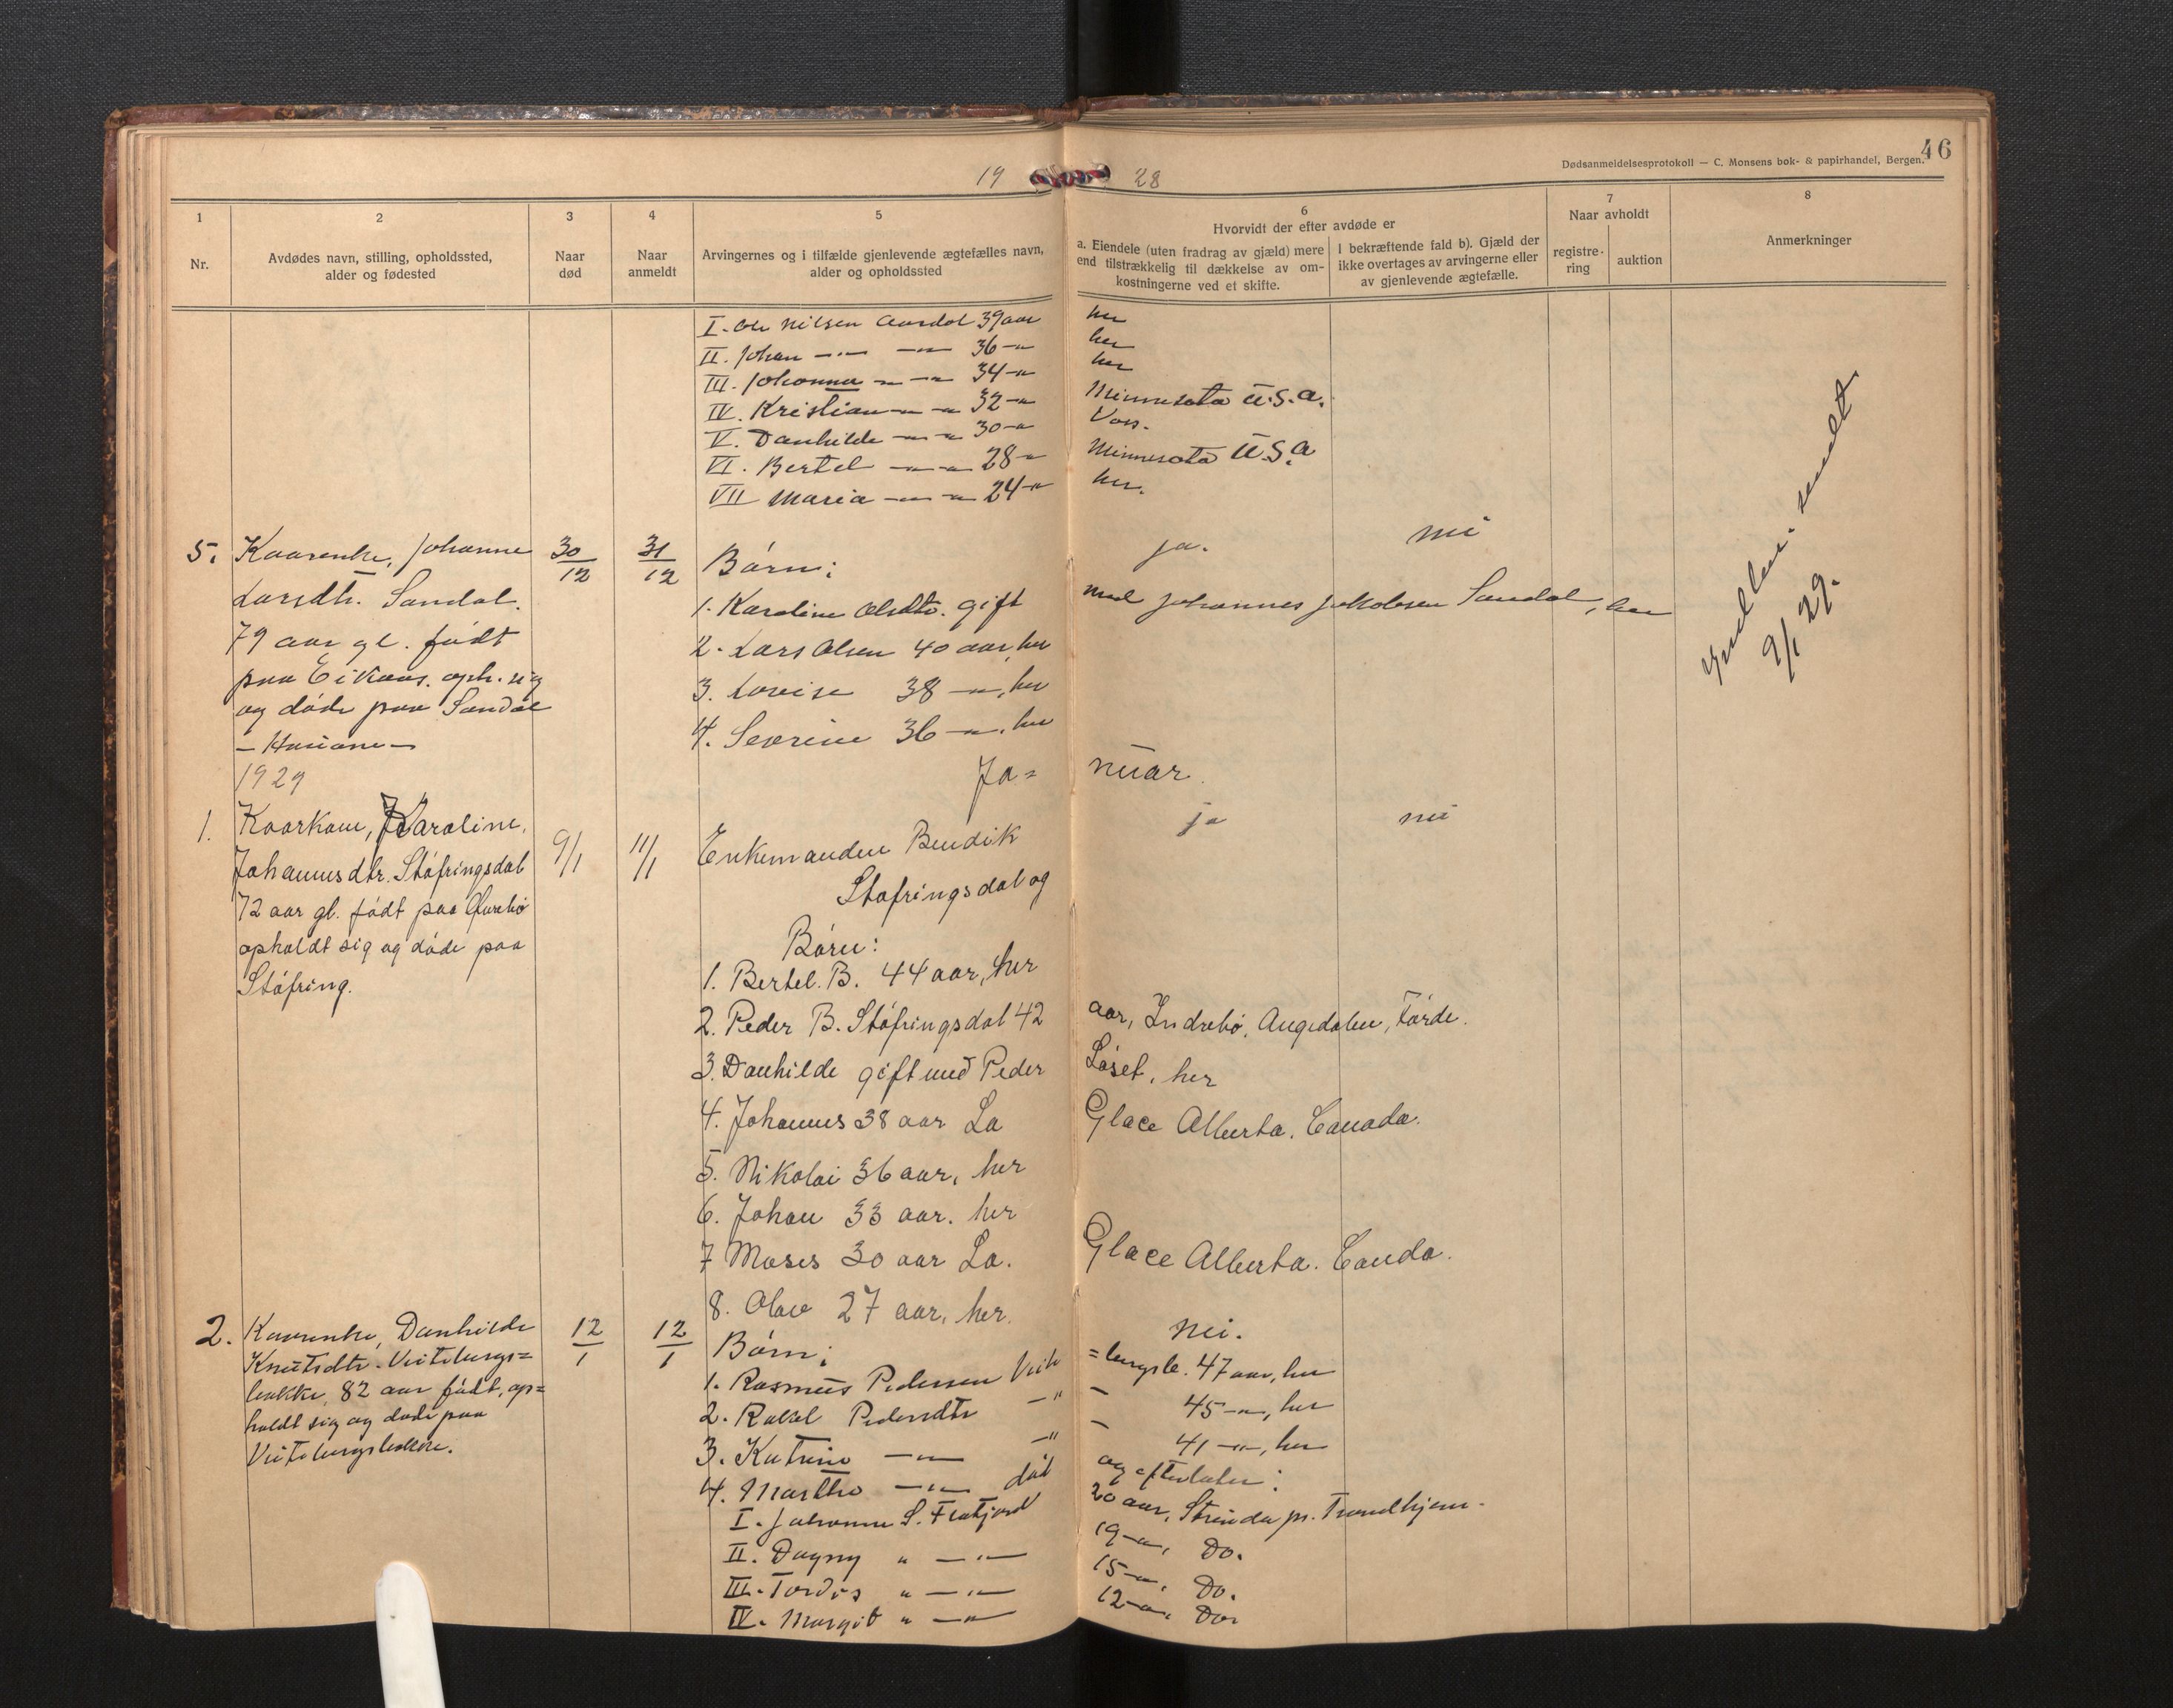 46
Dødsanmeldelsesprotokoll — C. Monsens bok- & papirhandel, Bergen.
19 28
1
Nr.
2
Avdødes navn, stilling, opholdssted,
alder og fødested
3
Naar
død
4
Naar
anmeldt
5
Arvingernes og i tilfælde gjenlevende ægtefælles navn,
alder og opholdssted
6
Hvorvidt der efter avdøde er
a. Eiendele (uten fradrag av gjæld) mere
end tilstrækkelig til dækkelse av om-
kostningerne ved et skifte.
I bekræftende fald b). Gjæld der
ikke overtages av arvingerne eller
av gjenlevende ægtefælle.
7
Naar avholdt
registre-
ring
auktion
8
Anmerkninger
I. Ole Nilsen Aardal 39 aar her
II. Johan —"— —"— 36 —"— her
III. Johanna —"— —"— 34 —"— her
IV. Kristian —"— —"— 32 —"— Minnesota U.S.A.
V. Danhilde —"— —"— 30 —"— Voss.
VI. Bertel —"— —"— 28 —"— Minnesota U.S.A
VII Maria —"— —"— 24 —"— her.
5. Kaarenke, Johanne 30/12 31/12 Børn: ja. nei
Larsdtr. Sandal. 1. Karoline Olsdtr. gift med Johannes Jakobsen Sandal, her
79 aar gl. født 2. Lars Olsen 40 aar, her
paa Eikaas. oph. sig 3. Lovise 38 —"—, her
og døde paa Sandal 4. Severine 36 —"—, her
9/1 29.
1929 Ja= nuar.
1. Kaarkone, Karoline, 9/1 11/1 Enkemanden Bendik ja nei
Johannesdtr. Støfringsdal Støfringsdal og
72 aar gl. født paa
opholdt sig og døde paa Børn:
Støfring. 1. Bertel. B. 44 aar, her
2. Peder B. Støfringsdal 42 aar, Indrebø, Angedalen, Førde.
3. Danhilde gift med Peder Løset, her
4. Johannes 38 aar La Glace Alberta. Canada.
5. Nikolai 36 aar, her
6. Johan 33 aar. her
7 Moses 30 aar La. Glace Alberta. Canda.
8. Olav 27 aar, her.
2. Kaarenke, Danhilde 12/1 12/1 Børn: nei.
Knutsdtr. Veitebergs= 1. Rasmus Pedersen Veite =bergsle. 47 aar, her
lække, 82 aar født, op= 2. Rakel Pedersdtr —"— 45 —"—, her
holdt sig og døde paa 3. Katrine —"— —"— 41 —"—, her
4. Marthe —"— død og efterlater:
I. Johanne S. Flatjord 20 aar, Strinda pr. Trondhjem.
II. Dagny " —"— 19 —"—, Do.
III. Tordis " —"— 15 —"—, Do.
IV. Margit " —"— 12 —"—, Do.